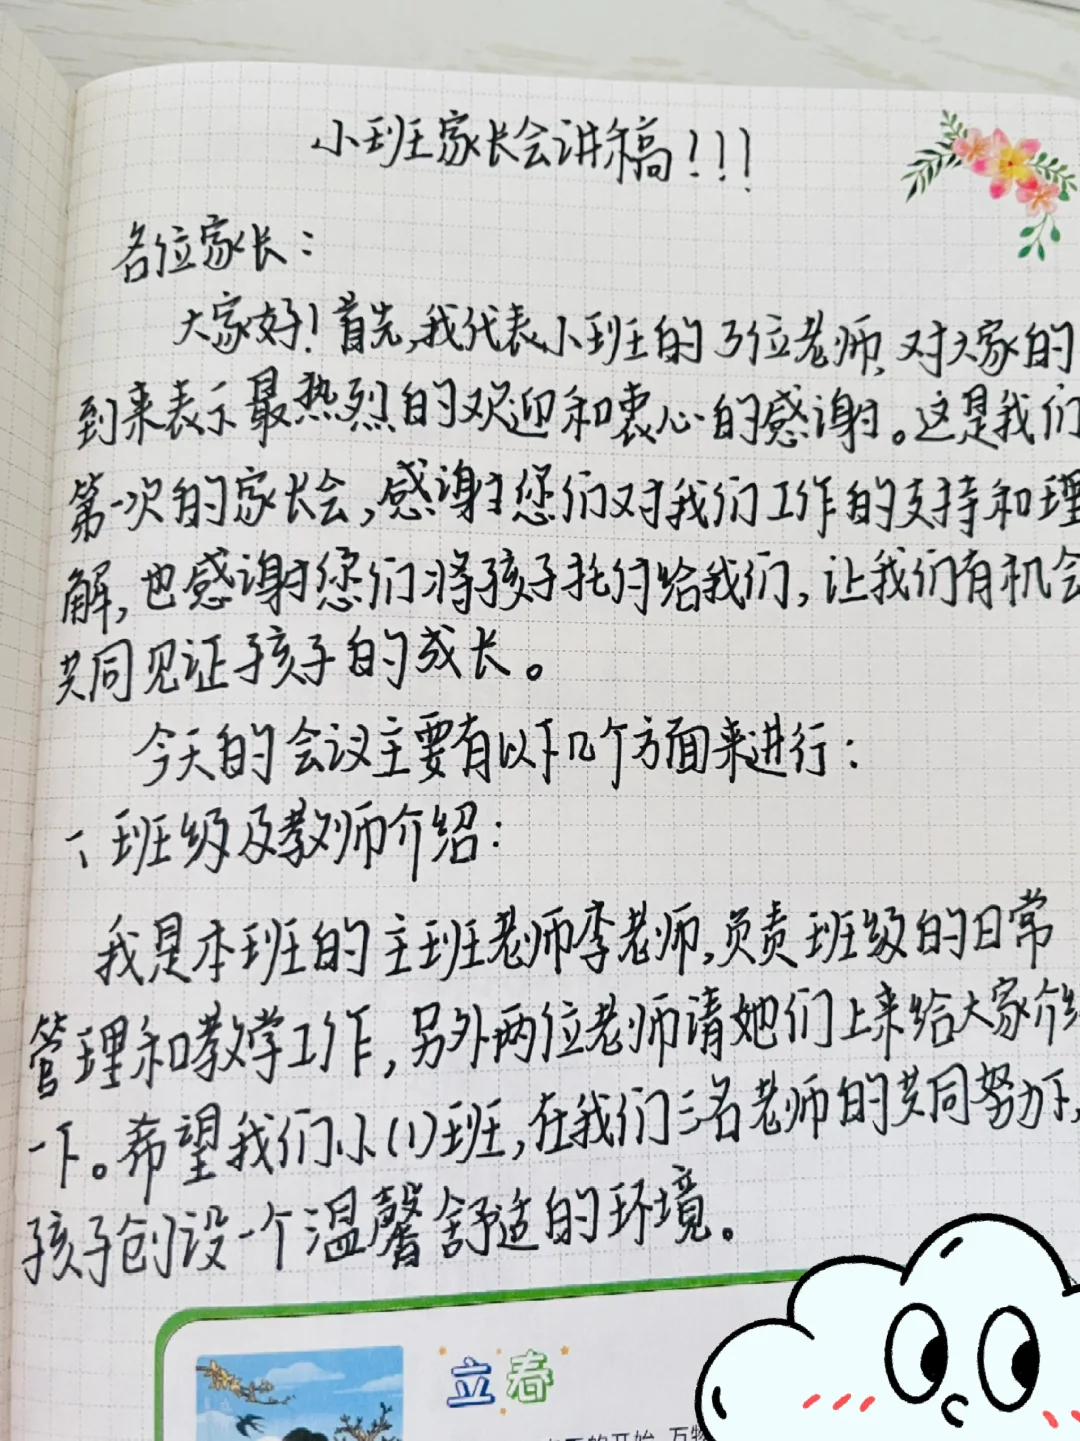 小班家长会讲稿!!!
各位家长：
大家好！首先,我代表小班的3位老师,对大家的
到来表示最热烈的欢迎和衷心的感谢。这是我们
第一次的家长会,感谢您们对我们工作的支持和理
解,也感谢您们将孩子托付给我们,让我们有机会
共同见证孩子的成长。
今天的会议主要有以下几个方面来进行：
一、班级及教师介绍：
我是本班的主班老师李老师,负责班级的日常
管理和教学工作,另外两位老师请她们上来给大家介绍
一下。希望我们小(1)班,在我们三名老师的共同努力下,
孩子创设一个温馨舒适的环境。
立春
的开始,万物